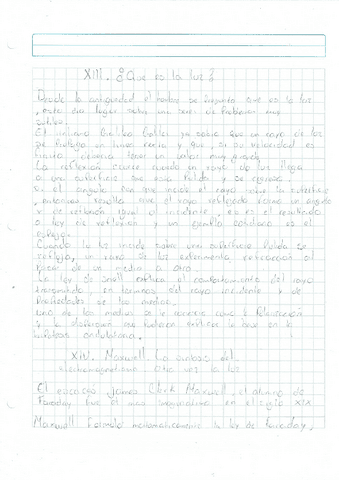 XIII. ¿Que es la luz?
Desde la antiguedad el hombre se pregunto que es la luz
, esto dio lugar sobre una serie de Problemas mas
El italiano Galileo Galilei ya sabia que un rayo de luz
se Propaga en linea recta y que, si su velocidad es
finita, deberia tener un valor muy grande
La reflexion ocurre cuando un rayo de luz llega
a una superficie que esta Pulida y se regresa
si el angulo con que incide el rayo sobre la superficie
, entonces resulta que el rayo reflejado forma un angulo
de reflexion igual al incidente, es es el resultado
la ley de reflexion y un ejemplo cotidiano es el
espejo.
Cuando la luz incide sobre una superficie Pulida se
refleja, un rayo de luz experimenta refraccion al
Pasar de un medio a otro.
La ley de Snell explica el comportamiento del rayo
transmitido, en terminos del rayo incidente y de
Propiedades de los medios.
uno de los medios se le conoce como la Polarizacion
y la dispersion que tambien explican la base en la
hipotesis ondulatoria.
XIV. Maxwell. La sintesis del
electromagnetismo. Otra vez la luz
El escoces James Clerk Maxwell, el alumno de
Faraday fue el mas imaginativo en el siglo XIX
Maxwell Formulo matematicamente la ley de Faraday.